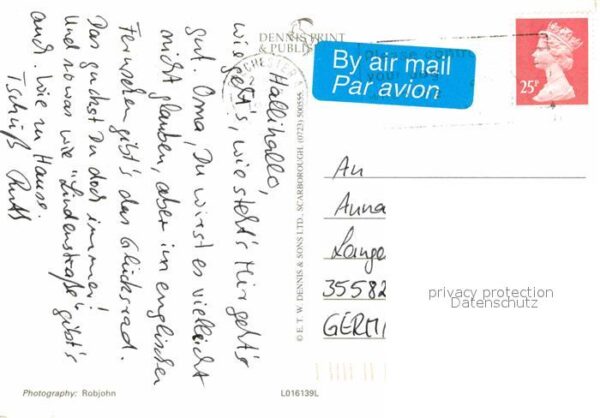 Hallihallo,
wie geht's, wie steht's? Mir geht's
gut. Oma, Du wirst es vielleicht
nicht glauben, aber im englischen
Fernsehen gibt's das Glücksrad.
Das guckst Du doch immer!
Und sowas wie "Lindenstraße" gibt's
auch. Wie zu Hause.
Tschüß Ruth
DENNIS PRINT
& PUBLISH
CHESTER
© E.T.W. DENNIS & SONS LTD., SCARBOROUGH. (0723) 500555
By air mail
Par avion
please control
your dog
25P
An
Anna
Lange
35582
GERM
privacy protection
Datenschutz
Photography: Robjohn
L016139L